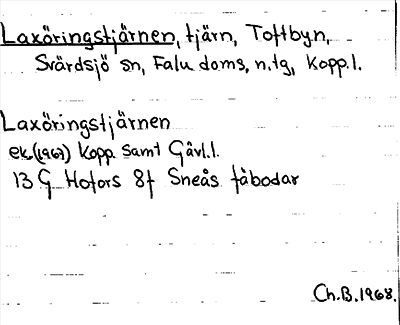 Laxöringstjärnen, tjärn, Toftbyn,
Svärdsjö sn, Falu doms, n.tg, Kopp.l.
Laxöringstjärnen
ek.(1967) Kopp. samt Gävl.l.
13 G Hofors 8f Sneås fåbodar
Ch.B.1968.